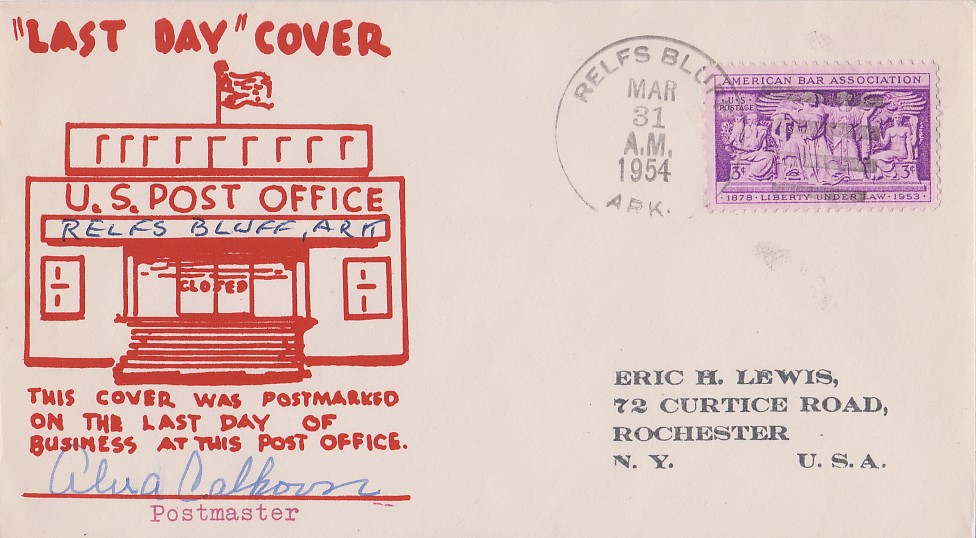 "LAST DAY" COVER
U.S. POST OFFICE
RELFS BLUFF, ARK
CLOSED
THIS COVER WAS POSTMARKED
ON THE LAST DAY OF
BUSINESS AT THIS POST OFFICE.
Alva Calhoun
Postmaster
RELFS BLUF
MAR
31
A.M.
1954
ARK.
AMERICAN BAR ASSOCIATION
U·S·
POSTAGE
3¢ 3¢
·1878·LIBERTY UNDER LAW·1953·
ERIC H. LEWIS,
72 CURTICE ROAD,
ROCHESTER
N. Y. U. S. A.